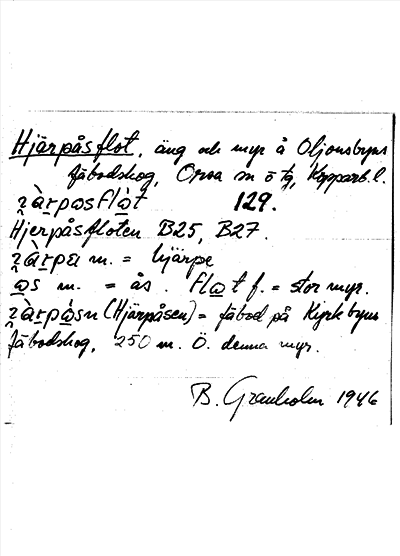 Hjärpåsflot, äng och myr å Oljonsbyns
fäbodskog, Orsa sn o tg, Kopparb. l.
ɿàrpɑsflɑ̀t 129.
Hjerpåsfloten B25, B27.
ɿàrpɑ m. = hjärpe
ɑs m. = ås. flɑt f. = stor myr.
ɿàrpɑ̀sn (Hjärpåsen) = fäbod på Kyrkbyns
fäbodskog, 250 m. Ö. denna myr.
B. Granholm 1946